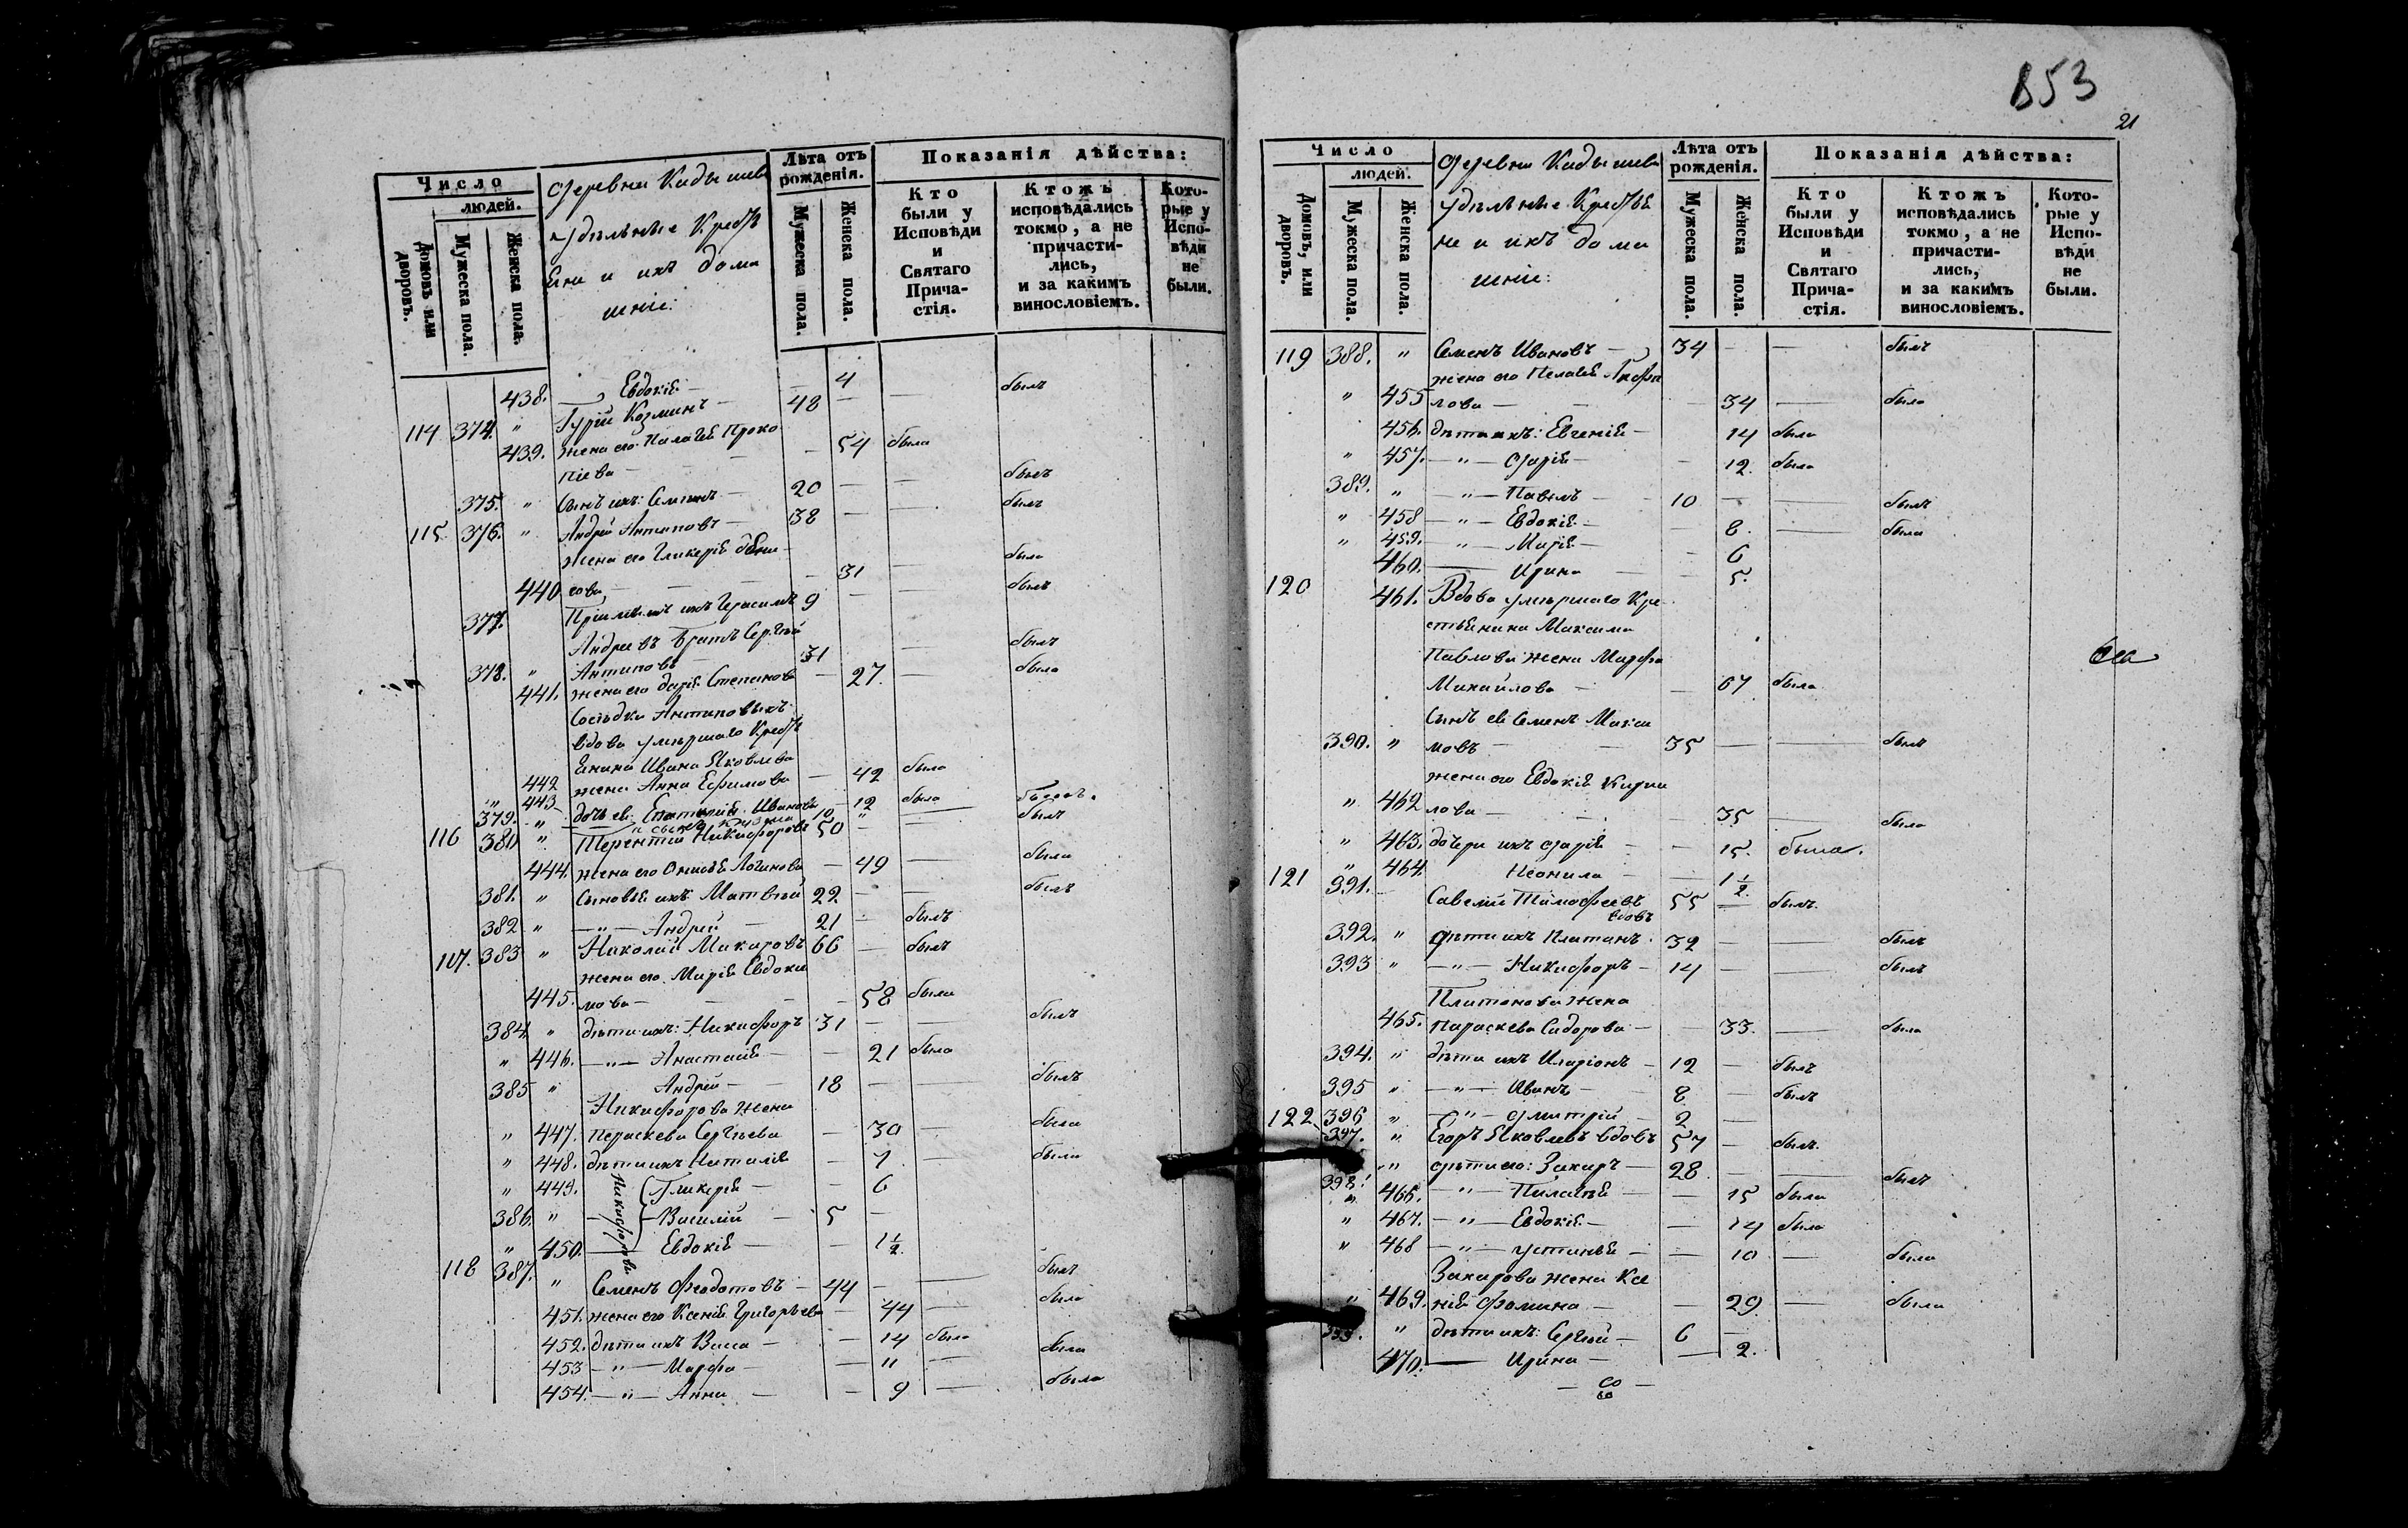 853
21
Число
людей.
Домовъ или дворовъ.
Мужеска пола.
Женска пола.
деревни Кадышева
удѣльные Крестья
ени и ихъ дома
шніе:
Лѣта отъ рожденія.
Мужеска пола.
Женска пола.
Показанія дѣйства:
Кто были у Исповѣди и Святаго Причастія.
Ктожъ исповѣдались токмо, а не причастились, и за какимъ винословіемъ.
Которые у Исповѣди не были.
438. Евдокія — 4 — былъ
114 374. " Гурій Козминъ — 48 — —
439. жена его Палагея Проко
піева — — 54 была
375. " Сынъ ихъ: Семенъ — 20 — — былъ
115 376. " Андрей Антиповъ — 38 — — былъ
жена его Гликерія Дени
440 сова, — — 31 — была
377. Пріимышъ ихъ Герасимъ 9 — — былъ
Андреевъ братъ Сергѣй
378. " Антиповъ — 31 — былъ
441. жена его Дарія Степанова — 27. — была
Сосѣдка Антиповыхъ
вдова умершаго Кресть
янина Ивана Яковлева
442 жена Анна Ефимова — 42 была
" 443 дочь ея Иванова — 12 была
379. " сынъ Кузма 10 " — былъ.
116 380 " Терентій Никифоровъ 50 — — былъ
444. жена его Онисья Логинова — 49 — была
381. " Сыновья ихъ: Матвѣй 22 — — былъ
382 " — " — Андрей — 21 — былъ
117. 383 " Николай Макаровъ 66 — былъ
жена его Марія Евдоки
445. мова — — — 58 была
384. " дѣти ихъ: Никифоръ 31 — — былъ
" 446. — " — Анастасія — — 21 была
385 " Андрей — 18 — — былъ
Никифорова жена
" 447. Параскева Сергѣева — 30 — была
" 448. дѣти ихъ Наталія — 7 — была
" 449. Гликерія — — 6
386. " — Василій — 5 —
" 450. — Евдокія — — 1 1/2.
Никифоровы
118 387. " Семенъ Феодотовъ — 44 — — былъ
451. жена его Ксенія Григорьева — 44 — была
452. дѣти ихъ Васса — — 14 была
453 — " — Марфа — — 11 — была
454. — " — Анна — — 9 — была
Число
людей.
Домовъ, или дворовъ.
Мужеска пола.
Женска пола.
деревни Кадышева
удѣльные Крестья
не и ихъ дома
шніе:
Лѣта отъ рожденія.
Мужеска пола.
Женска пола.
Показанія дѣйства:
Кто были у Исповѣди и Святаго Причастія.
Ктожъ исповѣдались токмо, а не причастились, и за какимъ винословіемъ.
Которые у Исповѣди не были.
119 388. " Семенъ Ивановъ — 34 — — былъ
жена его Пелагея
" 455 лова — — 34 — была
456. дѣти ихъ: Евгенія — 14 была
" 457. — " — Дарія — — 12. была
389. " — " — Павелъ — 10 — — былъ
" 458 — " — Евдокія — 8. — была
" 459. — " — Марія — — 6
460. — Ирина — — 5.
120 461. Вдова умершаго Кре
стьянина Максима
Павлова жена Марфа
Михайлова — — 67 была
Сынъ ея Семенъ Макси
390. " мовъ — — 35 — — былъ
жена его Евдокія Кирил
" 462 лова — — 35 — была
" 463. дочери ихъ Дарія — — 15. была.
" 464. Неонила — — 1 1/2.
121 391. — Савелій Тимофеевъ 55 — былъ.
вдовъ
392. " дѣти ихъ Платонъ. 32 — — былъ
393 " — " — Никифоръ — 14 — — былъ
Платонова жена
465. Параскева Сидорова — — 33. — была
394. " дѣти ихъ Иларіонъ — 12 — былъ
395 " — " — Иванъ — 8 — былъ
122. 396 " — " — Дмитрій — 2 —
397. " Егоръ Яковлевъ вдовъ 57 — былъ.
398. " дѣти его: Захаръ — 28 — — былъ
" 466. — " — Пелагея — — 15 была
" 467. — " — Евдокія — — 14 была
" 468 — " — Устинья — — 10 — была
Захарова жена Ксе
" 469. нія Фомина — — 29 — была
399. " дѣти ихъ: Сергѣй — 6 —
470. — Ирина — — 2.